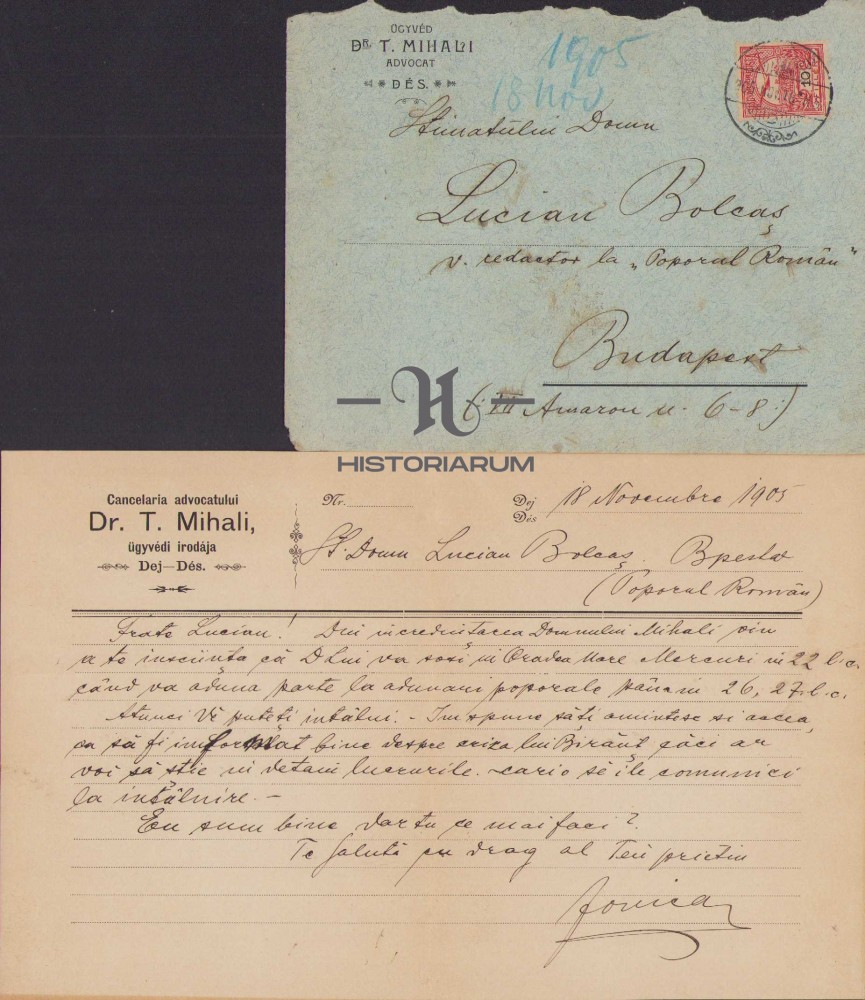 ÜGYVÉD
DR. T. MIHALI
ADVOCAT
DÉS.
1905
18 nov
10
Stimatului Domn
Lucian Bolcaș
v. redactor la „Poporul Român"
Budapest
(: VII Amazon u. 6-8 :)
HISTORIARUM
Cancelaria advocatului
Dr. T. Mihali,
ügyvédi irodája
Dej—Dés.
Nr.
Dej
Dés
18 Novembre 1905
St. Domn Lucian Bolcaș. Bpesta
(Poporul Român)
Frate Lucian! Din incredințarea Domnului Mihali vin
a te insciința că DLui va sosi in Oradea Mare Mercuri in 22 l.c.
când va parte la adunări poporale până in 26, 27 l.c.
Atunci Vĕ puteți intâlni. - Imi spune săți amintesc si aceea,
ca să fi informat bine despre lui căci ar
voi să stie in detaiu lucrurile. - cari o să ile comunici
la intâlnire. -
Eu sum bine dar tu ce mai faci?
Te salută cu drag al Tĕu prietin